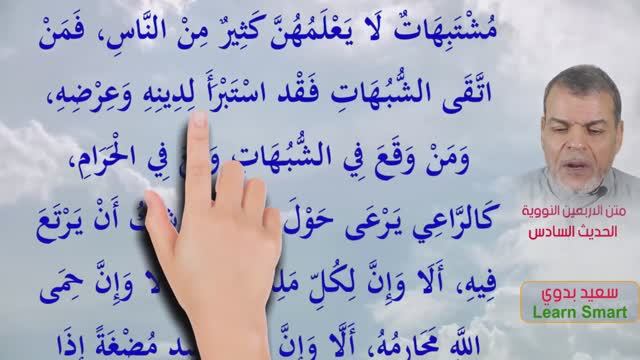 مُشْتَبِهَاتٌ لَا يَعْلَمُهُنَّ كَثِيرٌ مِنْ النَّاسِ، فَمَنْ
اتَّقَى الشُّبُهَاتِ فَقْد اسْتَبْرَأَ لِدِينِهِ وَعِرْضِهِ،
وَمَنْ وَقَعَ فِي الشُّبُهَاتِ فِي الْحَرَامِ،
كَالرَّاعِي يَرْعَى حَوْلَ أَنْ يَرْتَعَ
فِيهِ، أَلَا وَإِنَّ لِكُلِّ وَإِنَّ حِمَى
اللَّهِ مَحَارِمُهُ، أَلَّا وَإِنَّ مُضْغَةً إذَا
متن الاربعين النووية
الحديث السادس
سعيد بدوي
Learn Smart